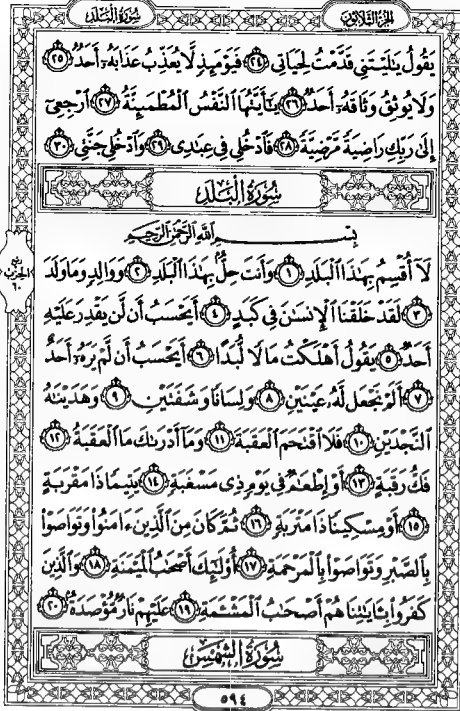 سُورَةُ الْبَلَدِ
الجزء الثلاثون
يَقُولُ يَٰلَيْتَنِى قَدَّمْتُ لِحَيَاتِى ٢٤ فَيَوْمَئِذٍ لَّا يُعَذِّبُ عَذَابَهُۥٓ أَحَدٌ ٢٥
وَلَا يُوثِقُ وَثَاقَهُۥٓ أَحَدٌ ٢٦ يَٰٓأَيَّتُهَا ٱلنَّفْسُ ٱلْمُطْمَئِنَّةُ ٢٧ ٱرْجِعِىٓ
إِلَىٰ رَبِّكِ رَاضِيَةً مَّرْضِيَّةً ٢٨ فَٱدْخُلِى فِى عِبَٰدِى ٢٩ وَٱدْخُلِى جَنَّتِى ٣٠
سُورَةُ الْبَلَدِ
بِسْمِ ٱللَّهِ ٱلرَّحْمَٰنِ ٱلرَّحِيمِ
لَآ أُقْسِمُ بِهَٰذَا ٱلْبَلَدِ ١ وَأَنتَ حِلٌّۢ بِهَٰذَا ٱلْبَلَدِ ٢ وَوَالِدٍ وَمَا وَلَدَ
٣ لَقَدْ خَلَقْنَا ٱلْإِنسَٰنَ فِى كَبَدٍ ٤ أَيَحْسَبُ أَن لَّن يَقْدِرَ عَلَيْهِ
أَحَدٌ ٥ يَقُولُ أَهْلَكْتُ مَالًا لُّبَدًا ٦ أَيَحْسَبُ أَن لَّمْ يَرَهُۥٓ أَحَدٌ
٧ أَلَمْ نَجْعَل لَّهُۥ عَيْنَيْنِ ٨ وَلِسَانًا وَشَفَتَيْنِ ٩ وَهَدَيْنَٰهُ
ٱلنَّجْدَيْنِ ١٠ فَلَا ٱقْتَحَمَ ٱلْعَقَبَةَ ١١ وَمَآ أَدْرَىٰكَ مَا ٱلْعَقَبَةُ ١٢
فَكُّ رَقَبَةٍ ١٣ أَوْ إِطْعَٰمٌ فِى يَوْمٍ ذِى مَسْغَبَةٍ ١٤ يَتِيمًا ذَا مَقْرَبَةٍ
١٥ أَوْ مِسْكِينًا ذَا مَتْرَبَةٍ ١٦ ثُمَّ كَانَ مِنَ ٱلَّذِينَ ءَامَنُوا۟ وَتَوَاصَوْا۟
بِٱلصَّبْرِ وَتَوَاصَوْا۟ بِٱلْمَرْحَمَةِ ١٧ أُو۟لَٰٓئِكَ أَصْحَٰبُ ٱلْمَيْمَنَةِ ١٨ وَٱلَّذِينَ
كَفَرُوا۟ بِـَٔايَٰتِنَا هُمْ أَصْحَٰبُ ٱلْمَشْـَٔمَةِ ١٩ عَلَيْهِمْ نَارٌ مُّؤْصَدَةٌۢ ٢٠
سُورَةُ الشَّمْسِ
ربع
الحزب
٦٠
٥٩٤